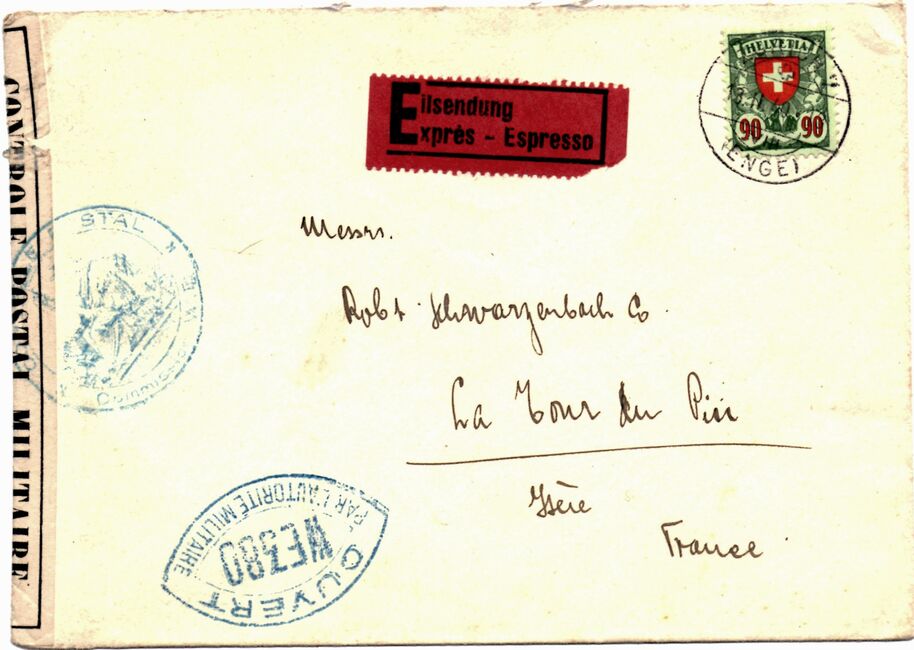 CONTROLE POSTAL MILITAIRE
Eilsendung
Exprès - Espresso
HELVETIA
90 90
(ENGE)
STAL M
Commiss
Messrs.
Robt Schwarzenbach Co.
La Tour du Pin
Isère
France
OUVERT
WE380
PAR L'AUTORITÉ MILITAIRE